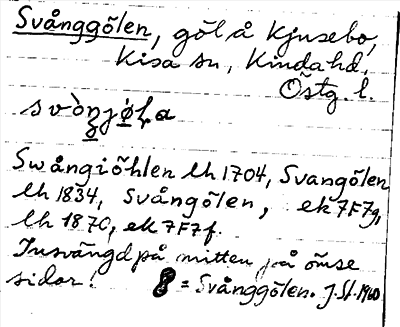 Svånggölen, göl å Kjusebo,
Kisa sn, Kinda hd,
Östg. l.
svòŋjø̀ɫa
Swångiöhlen lh 1704, Svangölen
lh 1834, Svångölen, ek 7F7g,
lh 1870, ek 7F7f.
Insvängd på mitten på ömse
sidor! = Svånggölen. J.Sl. 1960